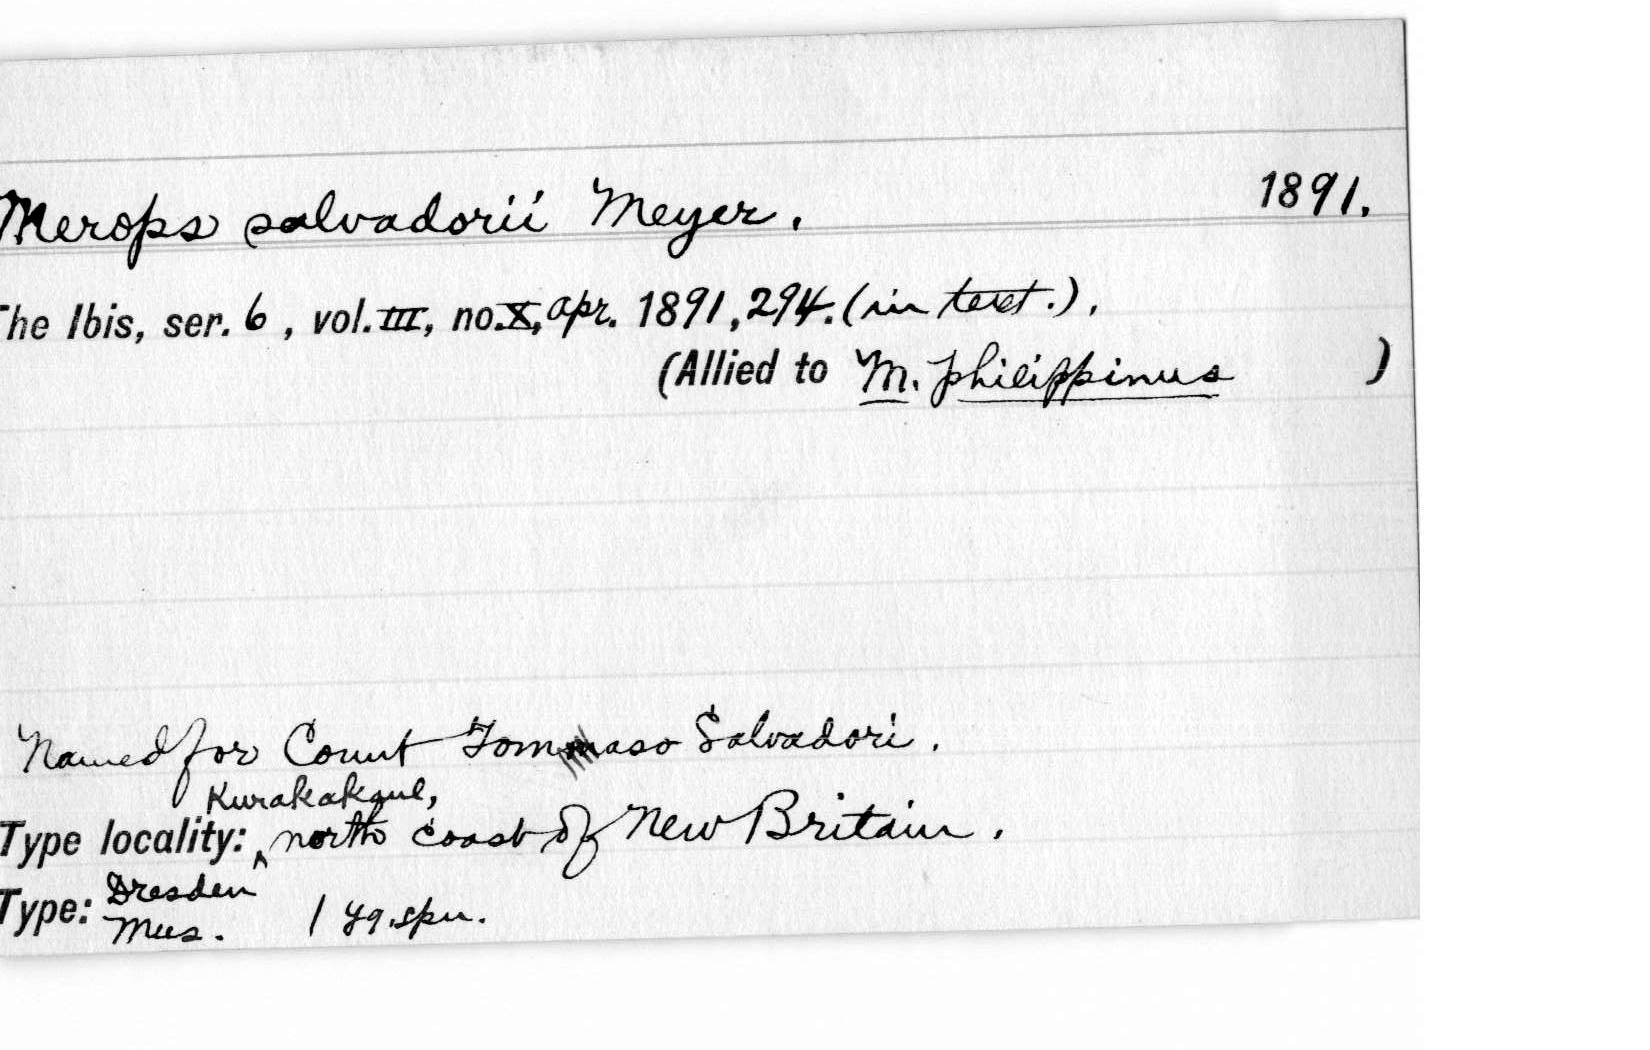 Merops salvadorii Meyer. 1891.
The Ibis, ser. 6, vol. III, no. X, apr. 1891, 294. (in text.),
(Allied to M. philippinus )
Named for Count Tommaso Salvadori.
Kurakakaul,
Type locality: ^ north coast of New Britain.
Type: Dresden
Mus. 1 yg. spn.